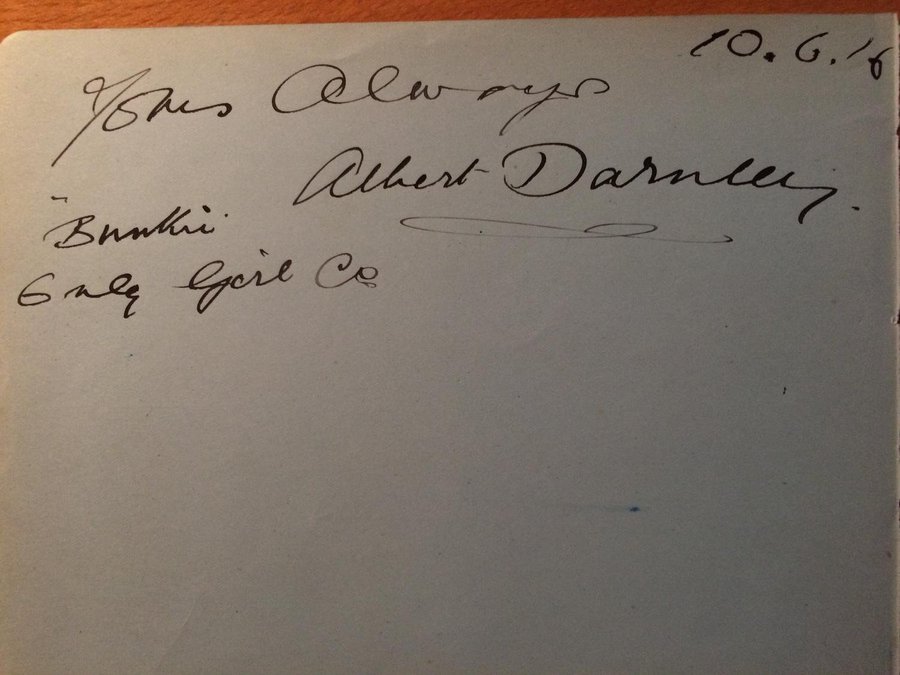 10.6.16
Yours Always
Albert Darnley.
"Bunkie.
Only Girl Co